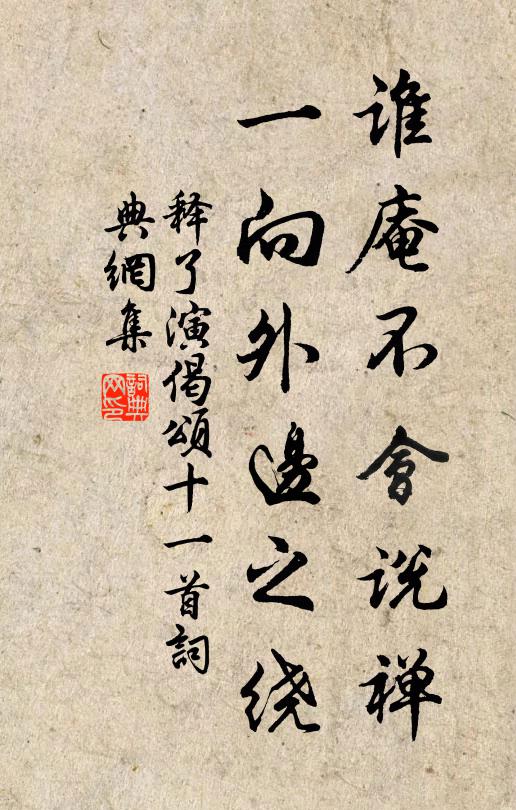 谁庵不会説禅
一向外邊之绕
释了演偈頌十一首詞
典網集
詞典
网印